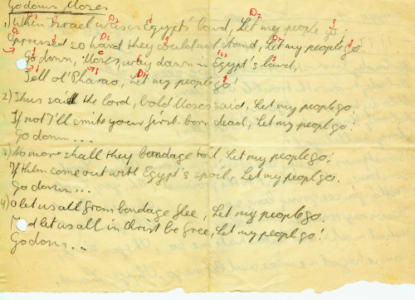 Go down Moses
1) When Israel was in Egypt's land, Let my people go,
Oppressed so hard they could not stand, Let my people go.
Go down, Moses, way down in Egypt's land,
Tell ol' Pharao, Let my people go.
2) Thus said the Lord, bold Moses said, Let my people go,
If not I'll smite your first-born dead, Let my people go!
Go down...
3) No more shall they bondage toil, Let my people go;
If them come out with Egypt's spoil, Let my people go.
Go down...
4) O let us all from bondage flee, Let my people go,
And let us all in Christ be free, Let my people go!
Go down...